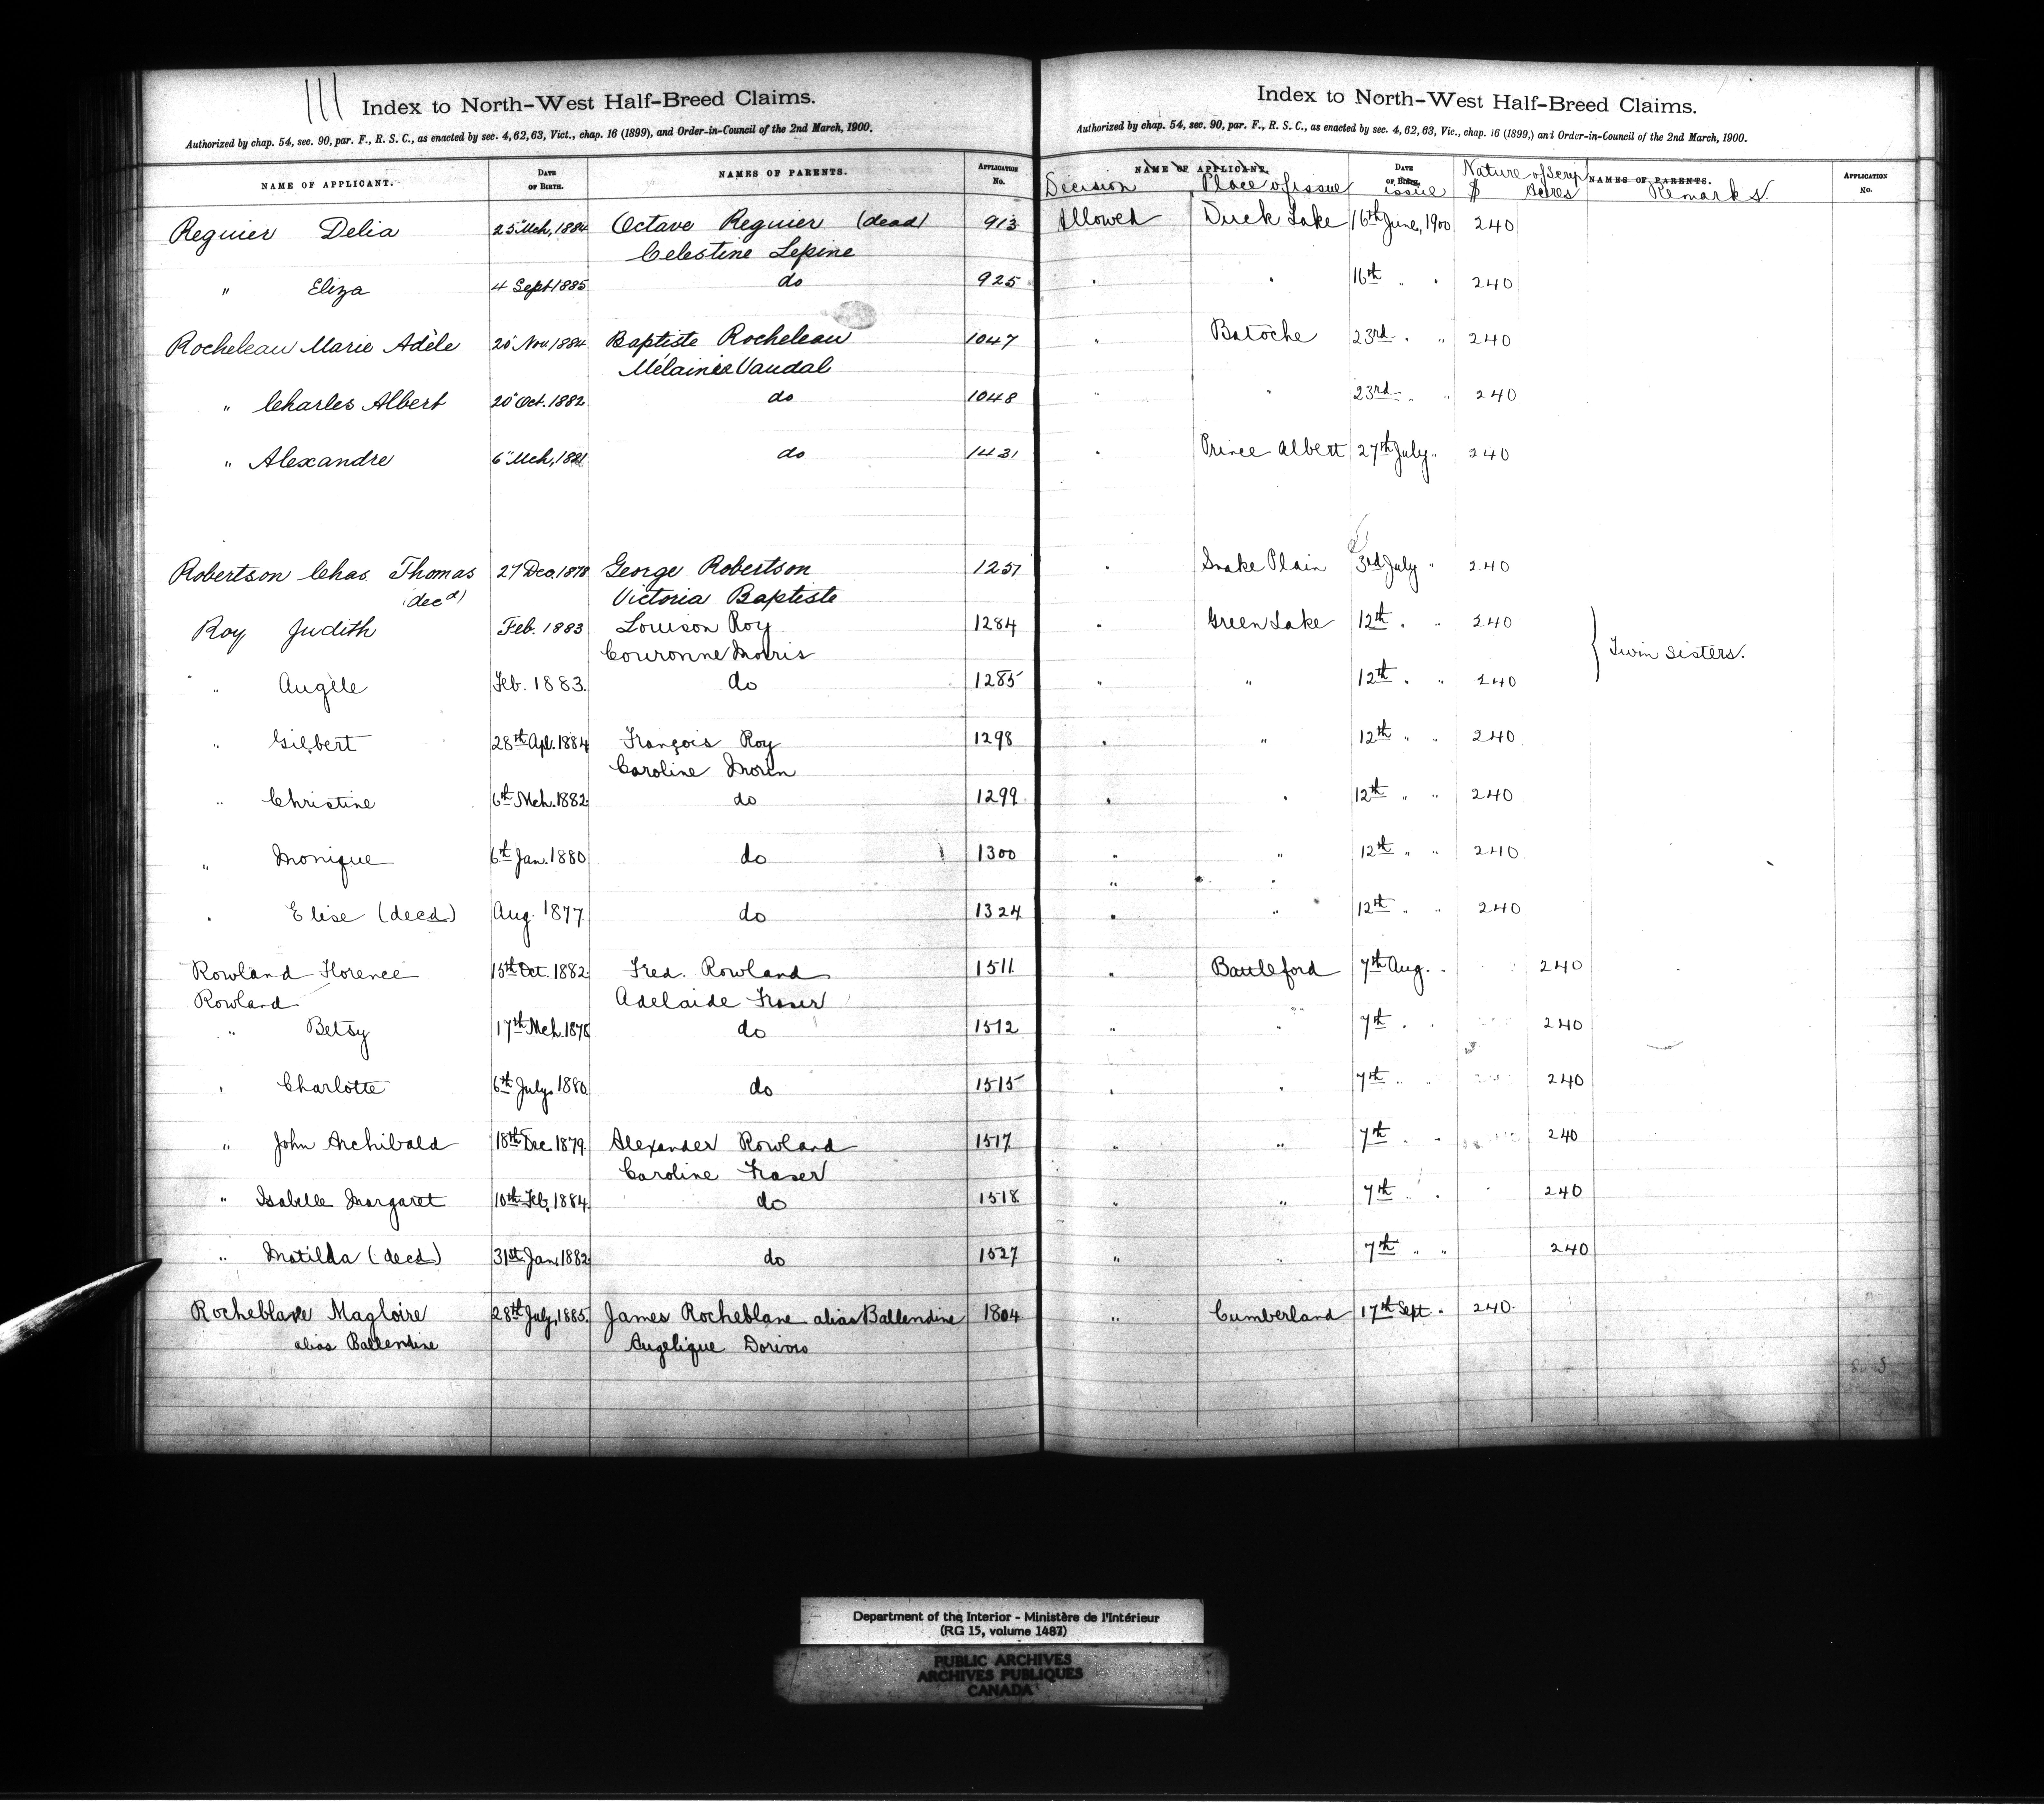 111
Index to North-West Half-Breed Claims.
Authorized by chap. 54, sec. 90, par. F., R. S. C., as enacted by sec. 4, 62, 63, Vict., chap. 16 (1899), and Order-in-Council of the 2nd March, 1900.
NAME OF APPLICANT. DATE OF BIRTH. NAMES OF PARENTS. APPLICATION No.
Regnier Delia 25" Mch, 1884 Octave Regnier (dead) 913
Celestine Lepine
" Eliza 4 Sept 1885 do 925
Rocheleau Marie Adèle 20" Nov. 1884 Baptiste Rocheleau 1047
Mélainie Vandal
" Charles Albert 20" Oct. 1882 do 1048
" Alexandre 6" Mch, 1881 do 1431
Robertson Chas. Thomas 27 Dec. 1878 George Robertson 1251
(decd) Victoria Baptiste
Roy Judith Feb. 1883 Louison Roy 1284
Couronne Morris
" Augèle Feb. 1883. do 1285
" Gilbert 28th Apl. 1884 François Roy 1298
Caroline Morin
" Christine 6th Mch. 1882 do 1299
" Monique 6th Jan. 1880 do 1300
" Elise (decd) Aug. 1877 do 1324
Rowland Florence 15th Oct. 1882 Fred. Rowland 1511
Rowland Adelaide Fraser
" Betsy 17th Mch. 1878 do 1512
" Charlotte 6th July 1880 do 1515
" John Archibald 18th Dec 1879. Alexander Rowland 1517
Caroline Fraser
" Isabelle Margaret 10th Feb, 1884. do 1518
" Matilda (decd) 31st Jan, 1882 do 1527
Rocheblave Magloire 28th July, 1885. James Rocheblane alias Ballendine 1804
alias Ballendine Angelique Dorion
Index to North-West Half-Breed Claims.
Authorized by chap. 54, sec. 90, par. F., R. S. C., as enacted by sec. 4, 62, 63, Vic., chap. 16 (1899,) and Order-in-Council of the 2nd March, 1900.
NAME OF APPLICANT. DATE OF BIRTH. NAMES OF PARENTS. APPLICATION No.
Decision Place of issue issue Nature of Scrip $ Acres Remarks.
Allowed Duck Lake 16th June, 1900 240
" " 16th " " 240
" Batoche 23rd " " 240
" " 23rd " " 240
" Prince Albert 27th July " 240
" Snake Plain 3rd July " 240
" Green Lake 12th " " 240
Twin Sisters.
" " 12th " " 240
" " 12th " " 240
" " 12th " " 240
" " 12th " " 240
" " 12th " " 240
" Battleford 7th Aug. " 240
" " 7th " " 240
" " 7th " " 240
" " 7th " " 240
" " 7th " " 240
" " 7th " " 240
" Cumberland 17th Sept. " 240.
Department of the Interior - Ministère de l'Intérieur
(RG 15, volume 1487)
PUBLIC ARCHIVES
ARCHIVES PUBLIQUES
CANADA